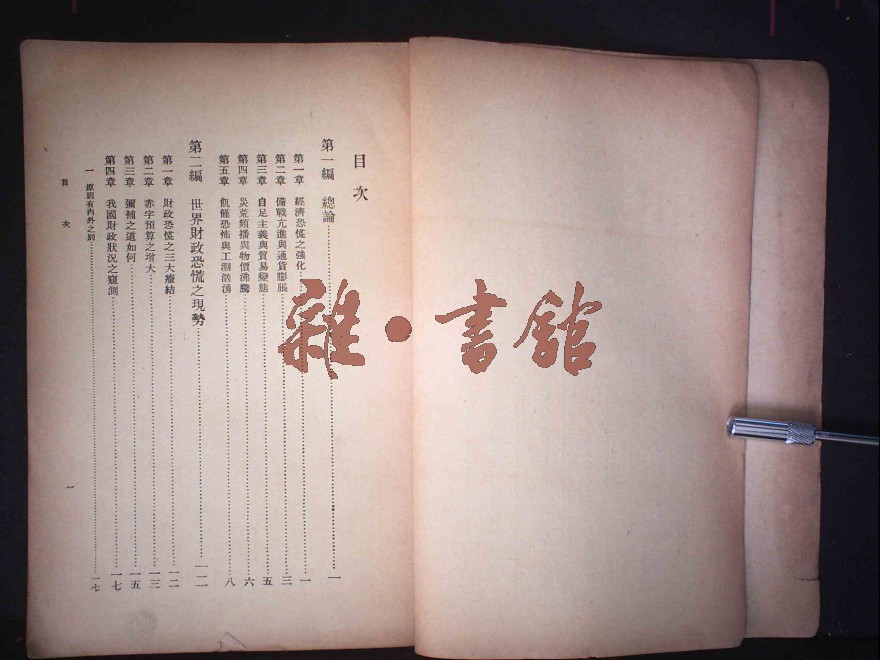 目次
第一編　總論…………一
第一章　經濟恐慌之強化…………一
第二章　備戰亢進與通貨膨脹…………三
第三章　自足主義與貿易變態…………五
第四章　災荒頻播與物價沸騰…………六
第五章　飢饉恐怖與工潮洶湧…………八
第二編　世界財政恐慌之現勢…………一二
第一章　財政恐慌之三大癥結…………一二
第二章　赤字預算之增大…………一三
第三章　彌補之道如何…………一五
第四章　我國財政狀況之窺測…………一七
一　原因有內外之別…………一七
目次
一
雜·書館